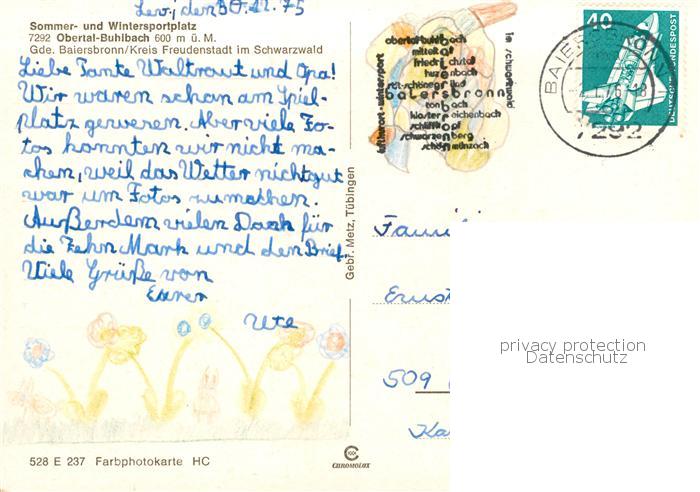 Lev., den 30.12.75
Sommer- und Wintersportplatz
7292 Obertal-Buhlbach 600 m ü. M.
Gde. Baiersbronn/Kreis Freudenstadt im Schwarzwald
Liebe Tante Waltraut und Opa!
Wir waren schon am Spiel-
platz gewesen. Aber viele Fo-
tos konnten wir nicht ma-
chen, weil das Wetter nicht gut
war um Fotos zu machen.
Außerdem vielen Dank für
die Zehn Mark und den Brief.
Viele Grüße von
Eurer
Ute
528 E 237 Farbphotokarte HC
Gebr. Metz, Tübingen
CHROMOLUX
luftkurort-wintersport
obertal buhlbach
mitteltal
friedrichstal
huzenbach
baiersbronn
tonbach
kloster reichenbach
schliffkopf
schwarzenberg
schönmünzach
im schwarzwald
BAIERSBRONN
7292
40
DEUTSCHE BUNDESPOST
Famili
Ernst
509
privacy protection
Datenschutz